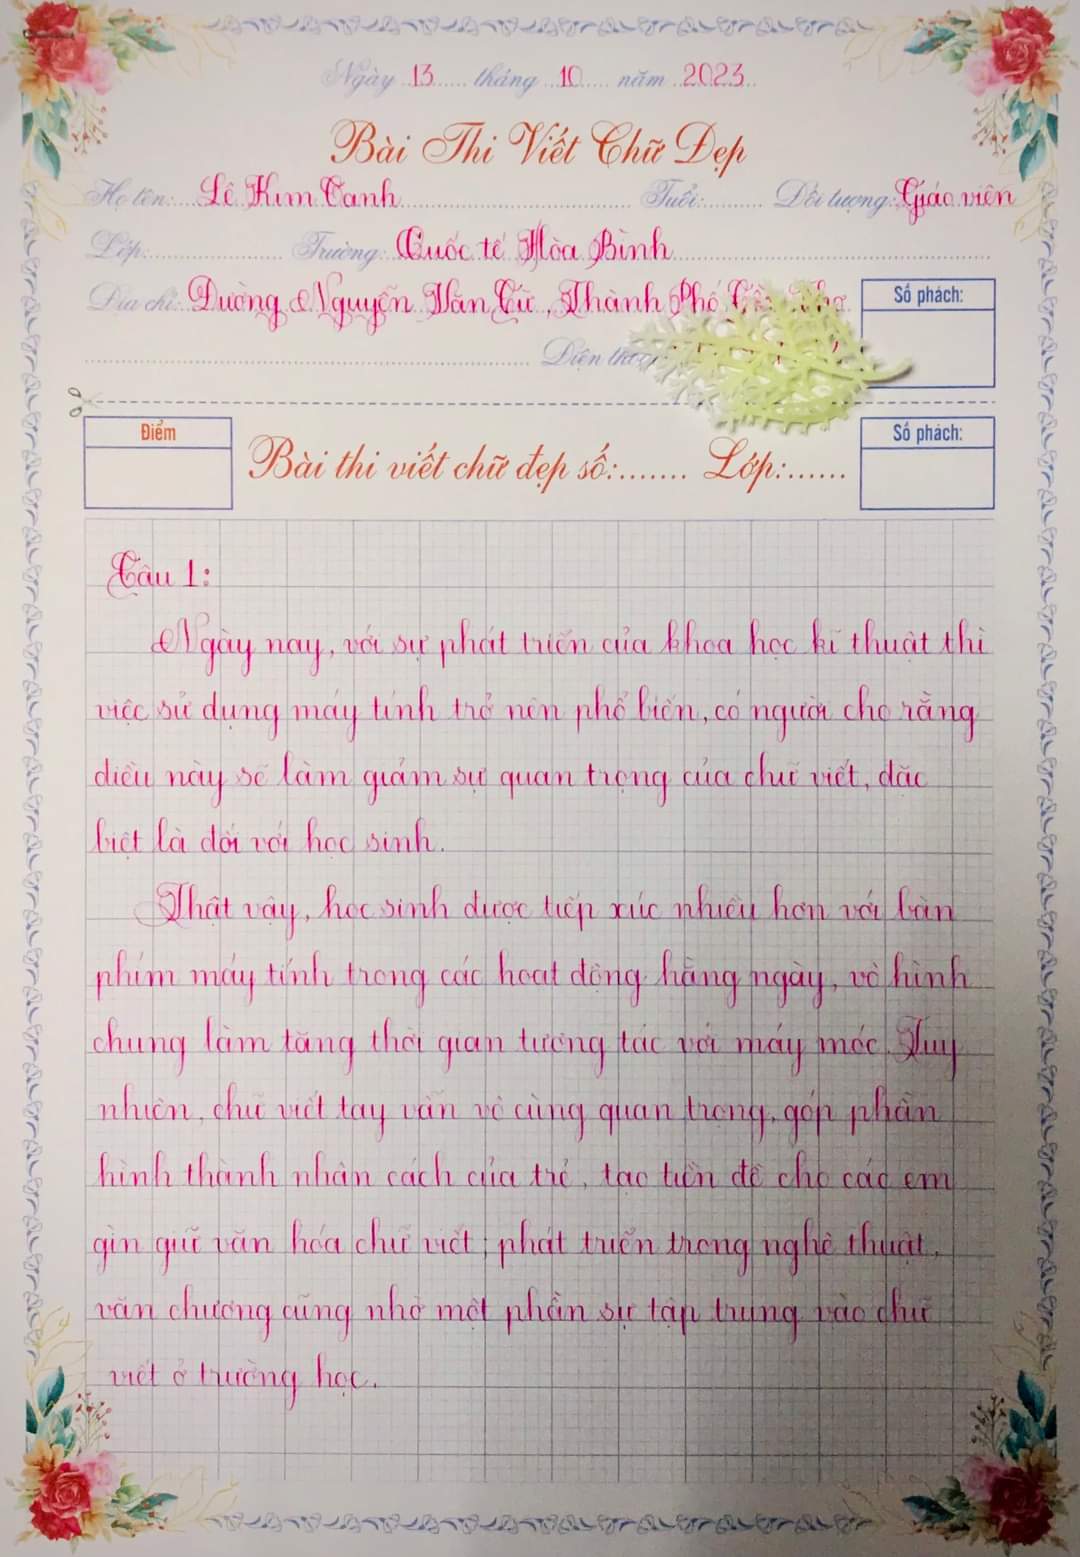 Ngày 13 tháng 10 năm 2023
Bài Thi Viết Chữ Đẹp
Họ tên: Lê Kim Oanh Tuổi: Đối tượng: Giáo viên
Lớp: Trường: Quốc tế Hòa Bình
Địa chỉ: Đường Nguyễn Văn Cừ, Thành Phố
Số phách:
Điện
Điểm
Bài thi viết chữ đẹp số:....... Lớp:......
Số phách:
Câu 1:
Ngày nay, với sự phát triển của khoa học kĩ thuật thì
việc sử dụng máy tính trở nên phổ biến, có người cho rằng
điều này sẽ làm giảm sự quan trọng của chữ viết, đặc
biệt là đối với học sinh.
Thật vậy, học sinh được tiếp xúc nhiều hơn với bàn
phím máy tính trong các hoạt động hằng ngày, vô hình
chung làm tăng thời gian tương tác với máy móc. Tuy
nhiên, chữ viết tay vẫn vô cùng quan trọng, góp phần
hình thành nhân cách của trẻ, tạo tiền đề cho các em
gìn giữ văn hóa chữ viết; phát triển trong nghệ thuật,
văn chương cũng nhờ một phần sự tập trung vào chữ
viết ở trường học.